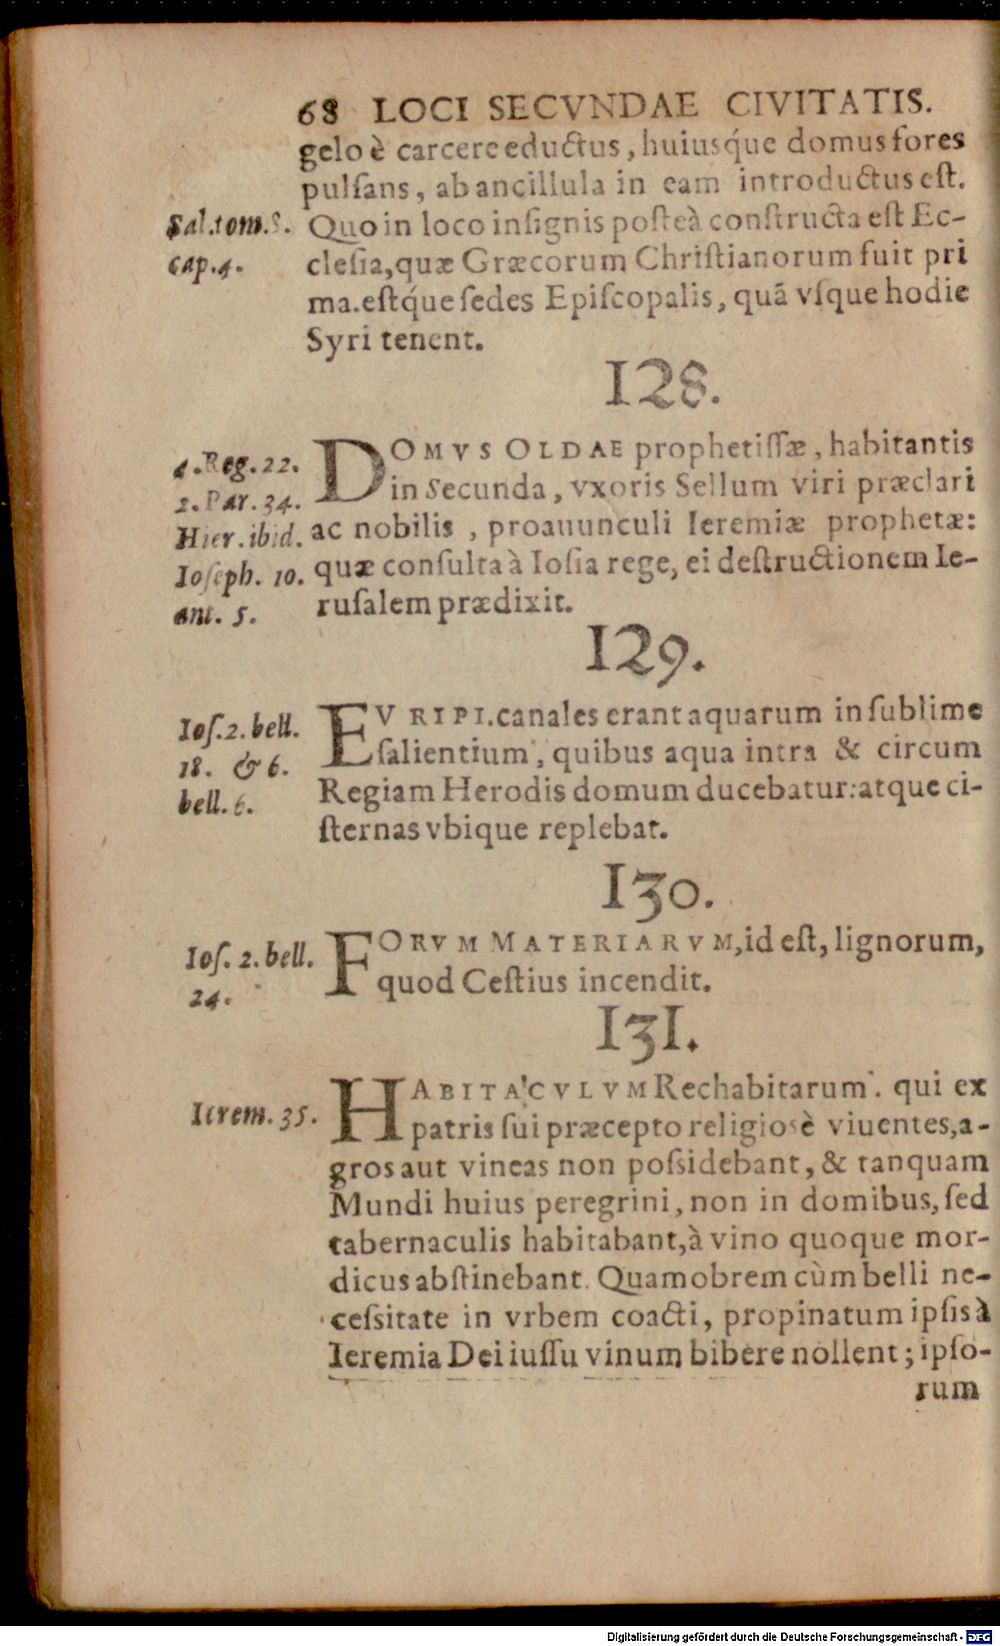 68 LOCI SECVNDAE CIVITATIS.
gelo è carcere eductus, huiusq́ue domus fores
pulſans, ab ancillula in eam introductus eſt.
Sal.tom.8.
Quo in loco inſignis poſteà conſtructa eſt Ec-
cap.4.
cleſia,quæ Græcorum Chriſtianorum fuit pri
ma.eſtq́ue ſedes Epiſcopalis, quā vſque hodie
Syri tenent.
128.
4.Reg.22.
DOMVS OLDAE prophetiſſæ, habitantis
2.Par.34.
in Secunda, vxoris Sellum viri præclari
Hier.ibid.
ac nobilis, proauunculi Ieremiæ prophetæ:
Ioseph. 10.
quæ conſulta à Ioſia rege, ei deſtructionem Ie-
ant. 5.
ruſalem prædixit.
129.
Ioſ.2.bell.
EVRIPI.canales erant aquarum in ſublime
18. & 6.
ſalientium, quibus aqua intra & circum
bell.6.
Regiam Herodis domum ducebatur:atque ci-
ſternas vbique replebat.
130.
Ioſ. 2.bell.
FORVM MATERIARVM,id eſt, lignorum,
24.
quod Ceſtius incendit.
131.
HABITACVLVM Rechabitarum. qui ex
Ierem.35.
patris ſui præcepto religiosè viuentes,a-
gros aut vineas non poſsidebant, & tanquam
Mundi huius peregrini, non in domibus, ſed
tabernaculis habitabant,à vino quoque mor-
dicus abſtinebant. Quamobrem cùm belli ne-
ceſsitate in vrbem coacti, propinatum ipſis à
Ieremia Dei iuſſu vinum bibere nollent; ipſo-
rum
Digitalisierung gefördert durch die Deutsche Forschungsgemeinschaft - DFG